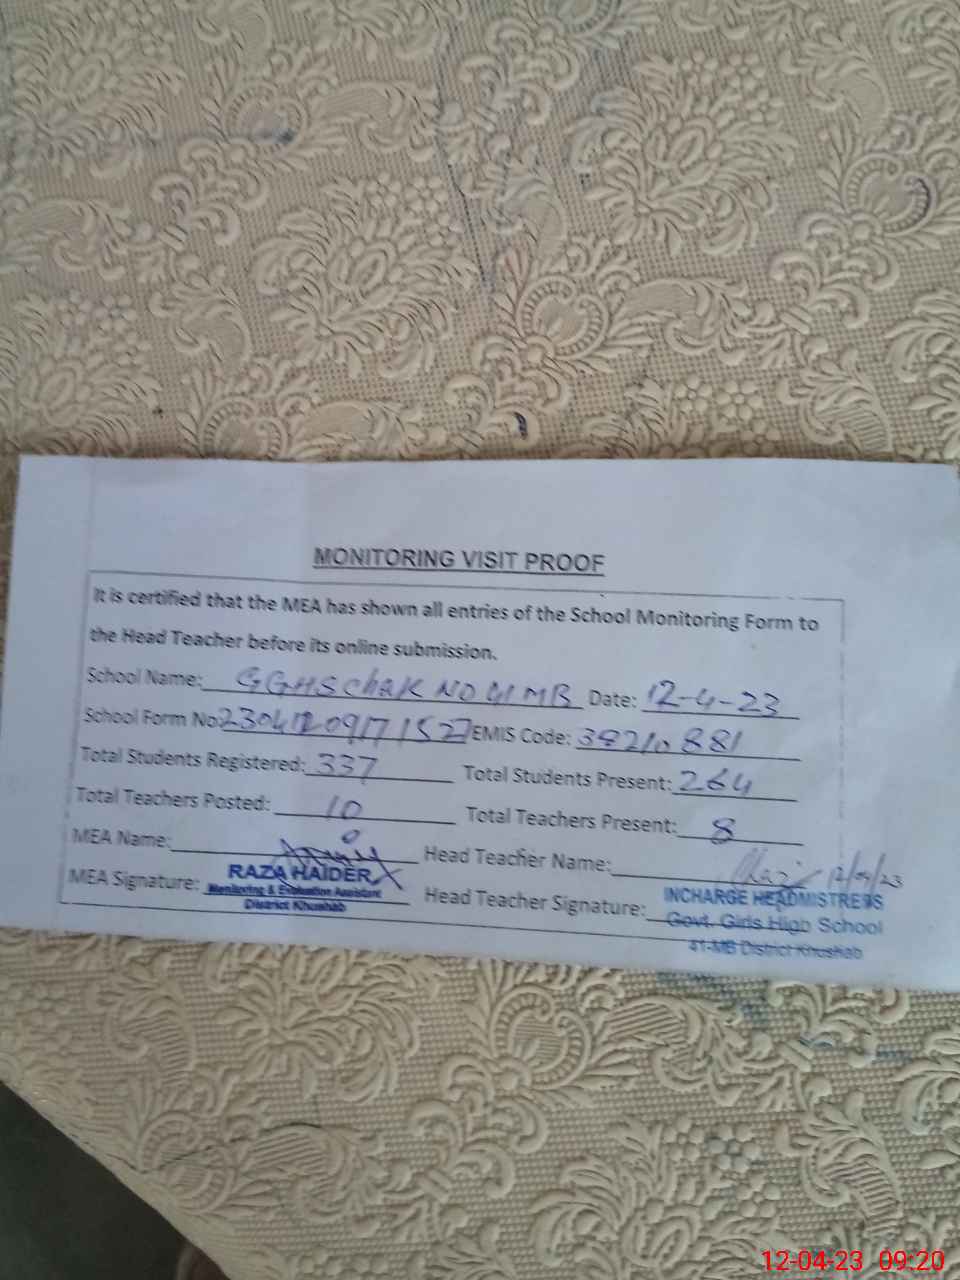 MONITORING VISIT PROOF
It is certified that the MEA has shown all entries of the School Monitoring Form to
the Head Teacher before its online submission.
School Name: GGHS Chak NO 41 MB Date: 12-4-23
School Form No: EMIS Code:
Total Students Registered: 337 Total Students Present: 264
Total Teachers Posted: 10 Total Teachers Present: 8
MEA Name: Head Teacher Name: 12/04/23
MEA Signature: RAZA HAIDER Head Teacher Signature: INCHARGE HEADMISTRESS
Monitoring & Evaluation Assistant Govt. Girls High School
District Khushab 41-MB District Khushab
12-04-23 09:20